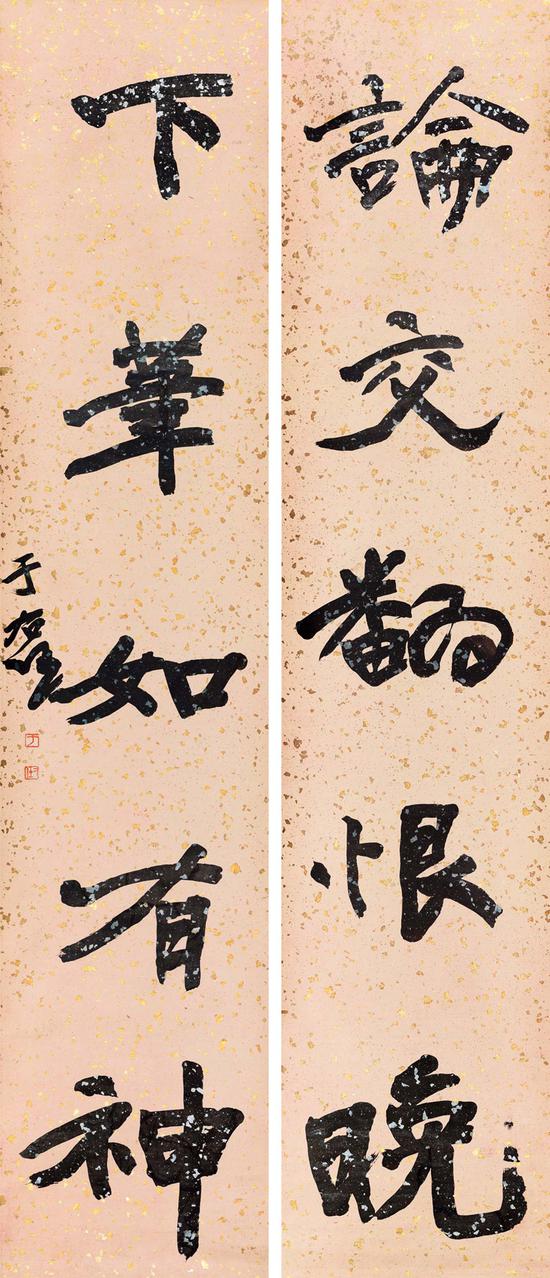 論交翻恨晚
下筆如有神
于